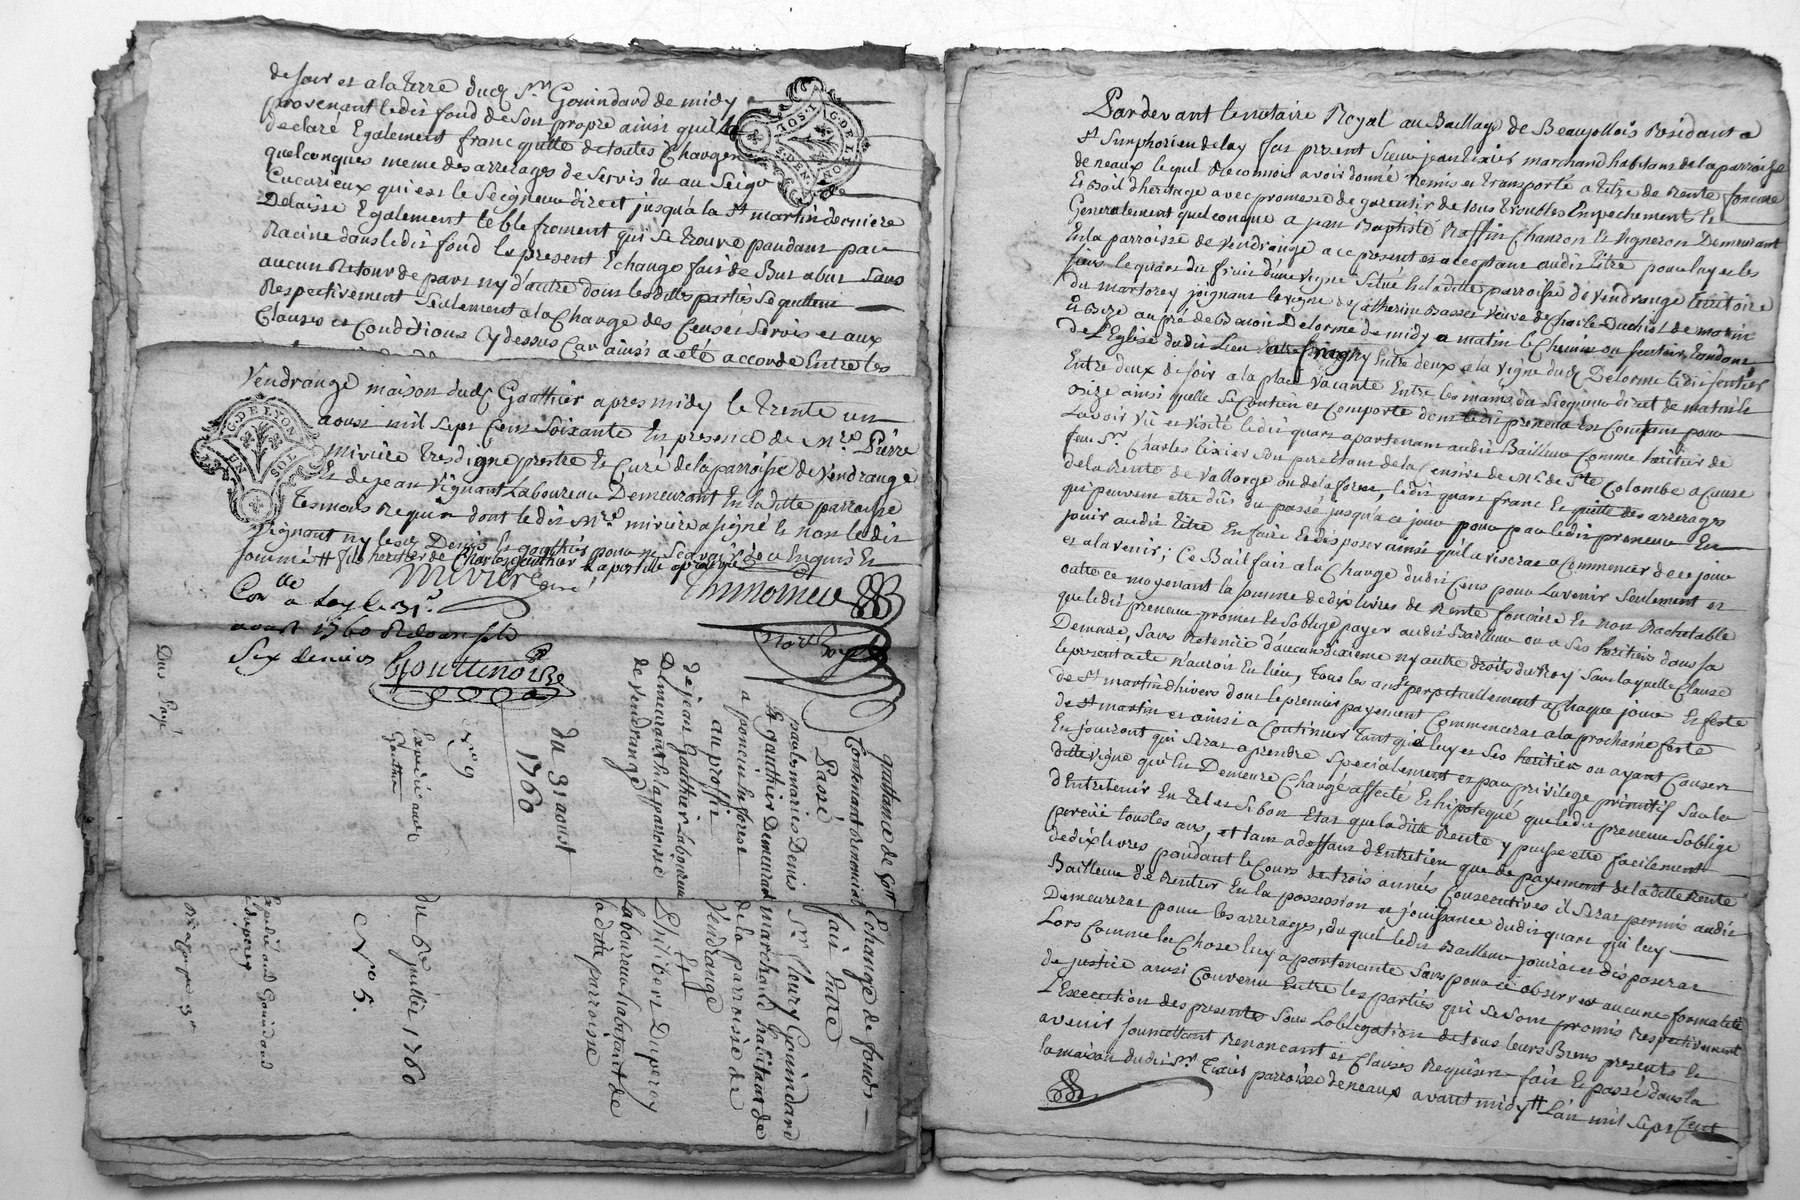 de soir et a la terre dudt Sr. Gouindard de midy
provenant ledit fond de son propre ainsi quil la
declaré Egalement franc quitte de toutes Charges
quelconques meme des arrerages de servis du au Seigr
Cucurieux qui est le Seigneur direct jusqua la St martin derniere
Delaisse Egalement le blé froment qui se trouve pandant par
Racine dans ledit fond le present Echange fait de But a but sans
aucun Retour de part ny d'autre dont lesdittes parties se quittent
Respectivement seulement a la Charge des Cens et servis et aux
Clauses et Conditions Cy dessus Car ainsi a eté accordé Entre les
G. DE LYON
Vendrange maison dudt Gauthier apres midy le trente un
aoust mil sept Cent soixante En presence de Mre. Pierre
Miviere tres digne prestre et Curé de la parroisse de Vendrange
Et de jean Vignant Laboureur Demeurant En la ditte parroisse
Tesmoins Requis dont ledit Mre. miviere a signé et non ledit
Vignant ny lesdt Denis et gauthier pour ne scavoir de ce Enquis Et
sommé # fils heritier de Charles gauthier
G. DE LYON
UN SOL
Miviere curé
Conlle a Lay le 31e.
aoust 1760 Recu
Six deniers
Gouttenoire
Dus payé
No. 9
Gauthier
du 31 aoust
1760
quittance de
Contenant renonciation
Passé
par les maries Denis
Et gauthier Demeurant
a foncin En forest
au proffit
de jean Gauthier Laboureur
Demeurant En la parroisse
de Vendrange
Echange de fonds
fait Entre
Sr. fleury Gouindard
marchand habitant de
de la parroisse de
Vendrange
Et
Philibert Duperoy
Laboureur habitant de
la ditte parroisse
du 6e juillet 1760
No. 5.
Pardevant le notaire Royal au Baillage de Beaujollois Residant a
St Simphorien de lay fut present Sieur jean tixier marchand habitant de la parroisse
de neaux lequel Reconnoit avoir donné Remis et transporté a titre de Rente fonciere
Et Bail d'heritage avec promesse de garentir de tous troubles Empechements Et
Generalement quelconque a jean Baptiste Raffin Charron Et Vigneron Demeurant
En la parroisse de Vendrange a ce present et acceptant audit titre pour luy et les
siens le quart du fruit d'une vigne située En la ditte parroisse de Vendrange territoire
du martorey joignant la vigne de Catherine Basset veuve de Charle Duchist de matin
Et Bize au pré de Benoit Delorme de midy a matin le Chemin ou sentier tandant
de l'Eglise dudit Lieu Entre deux a la vigne dudt Delorme ledit sentier
Entre deux de soir a la place vacante Entre les mains du Seigneur direct de matin Et
Bize ainsi quelle se Contien et Comporte dont ledit preneur Est Contant pour
Lavoir vû et visité ledit quart apartenant audit Bailleur Comme heritier de
feu Sr. Charles tixier son pere Etant de la Censive de Mr. de Ste Colombe a Cause
de la Rente de Vallorge ou de la foret, ledit quart franc Et quitte des arrerages
qui peuvent etre dûs du passé jusqu'a ce jour pour par ledit preneur En
jouir audit titre En faire Et disposer ainsi qu'il aviserat a Commencer de ce jour
et a lavenir ; Ce Bail fait a la Charge dudit Cens pour Lavenir seulement et
outre ce moyenant la somme de dix livres de Rente fonciere Et non Rachetable
que ledit preneur promet Et s'oblige payer audit Bailleur ou a ses heritiers dans sa
Demeure, sans Retenüe d'aucun dixieme ny autre droits du Roy sans laquelle Clause
le present acte n'auroit En lieu, tous les ans perpetuellement a Chaque jour Et feste
de St martin d'hivers dont le premier payement Commencerat a la prochaine feste
de St martin et ainsi a Continüer tant que luy et ses heritiers ou ayant Causes
En jouiront qui serat a prendre specialement et par privilege primitif sur la
ditte vigne qui En Demeure Chargé affecté Et hipotequé que ledit preneur s'oblige
d'Entretenir En tel et si bon Etat que la ditte Rente y puisse etre facilement
percüe tous les ans, et tant a deffaut d'Entretien que de payement de la ditte Rente
de dix livres pandant le Cours de trois années Consecutives il serat permis audit
Bailleur de Rentrer En la possession et jouissance dudit quart qui luy
Demeurerat pour les arrerages, du quel ledit Bailleur jouirat et disposerat
Lors Comme de Chose luy apartenante sans pour ce observer aucune formalité
de justice ainsi Convenu Entre les parties qui se sont promis Respectivement
L'Execution des presentes sous Lobligation de tous leurs Biens presents Et
avenir soumettant Renoncant et Clauses Requises fait Et passé dans la
la maison dudit Sr. Tixier parroisse de neaux avant midy # L'an mil sept Cent